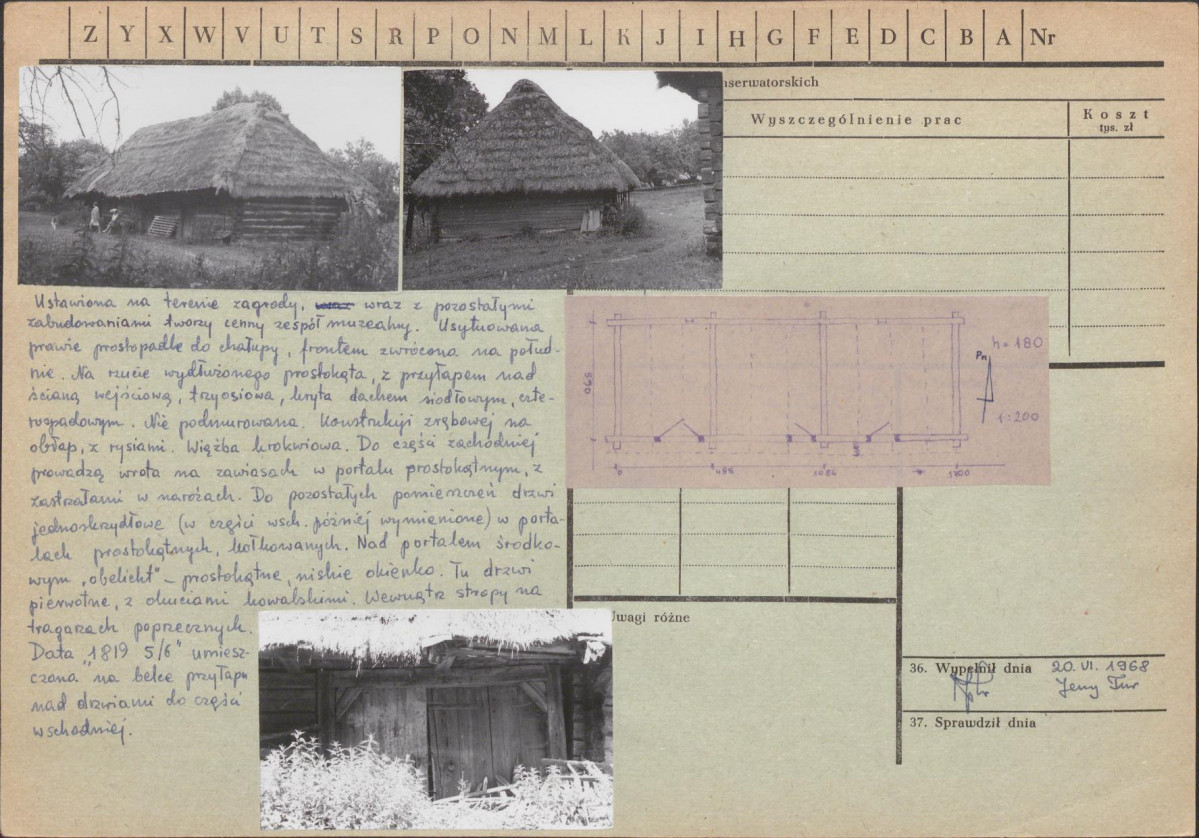 Z Y X W V U T S R P O N M L K J I H G F E D C B A Nr
nserwatorskich
Wyszczególnienie prac
Koszt
tys. zł
Ustawiona na terenie zagrody, wraz z pozostałymi
zabudowaniami tworzy cenny zespół muzealny. Usytuowana
prawie prostopadle do chałupy, frontem zwrócona na połud-
nie. Na rzucie wydłużonego prostokąta, z przyłapem nad
ścianą wejściową, trzyosiowa, kryta dachem siodłowym, czte-
rospadowym. Nie podmurowana. Konstrukcji zrębowej na
obłap, z rysiami. Więźba krokwiowa. Do części zachodniej
prowadzą wrota na zawiasach w portalu prostokątnym, z
zastrzałami w narożach. Do pozostałych pomieszczeń drzwi
jednoskrzydłowe (w części wsch. później wymienione) w porta-
lach prostokątnych, kołkowanych. Nad portalem środko-
wym „obelicht" – prostokątne, niskie okienko. Tu drzwi
pierwotne, z okuciami kowalskimi. Wewnątrz stropy na
tragarzach poprzecznych.
Data „1819 5/6" umiesz-
czona na belce przyłapu
nad drzwiami do części
wschodniej.
h=180
Pn
1:200
590
0
486
1086
1700
Uwagi różne
36. Wypełnił dnia 20.VI.1968
Jerzy Tur
37. Sprawdził dnia